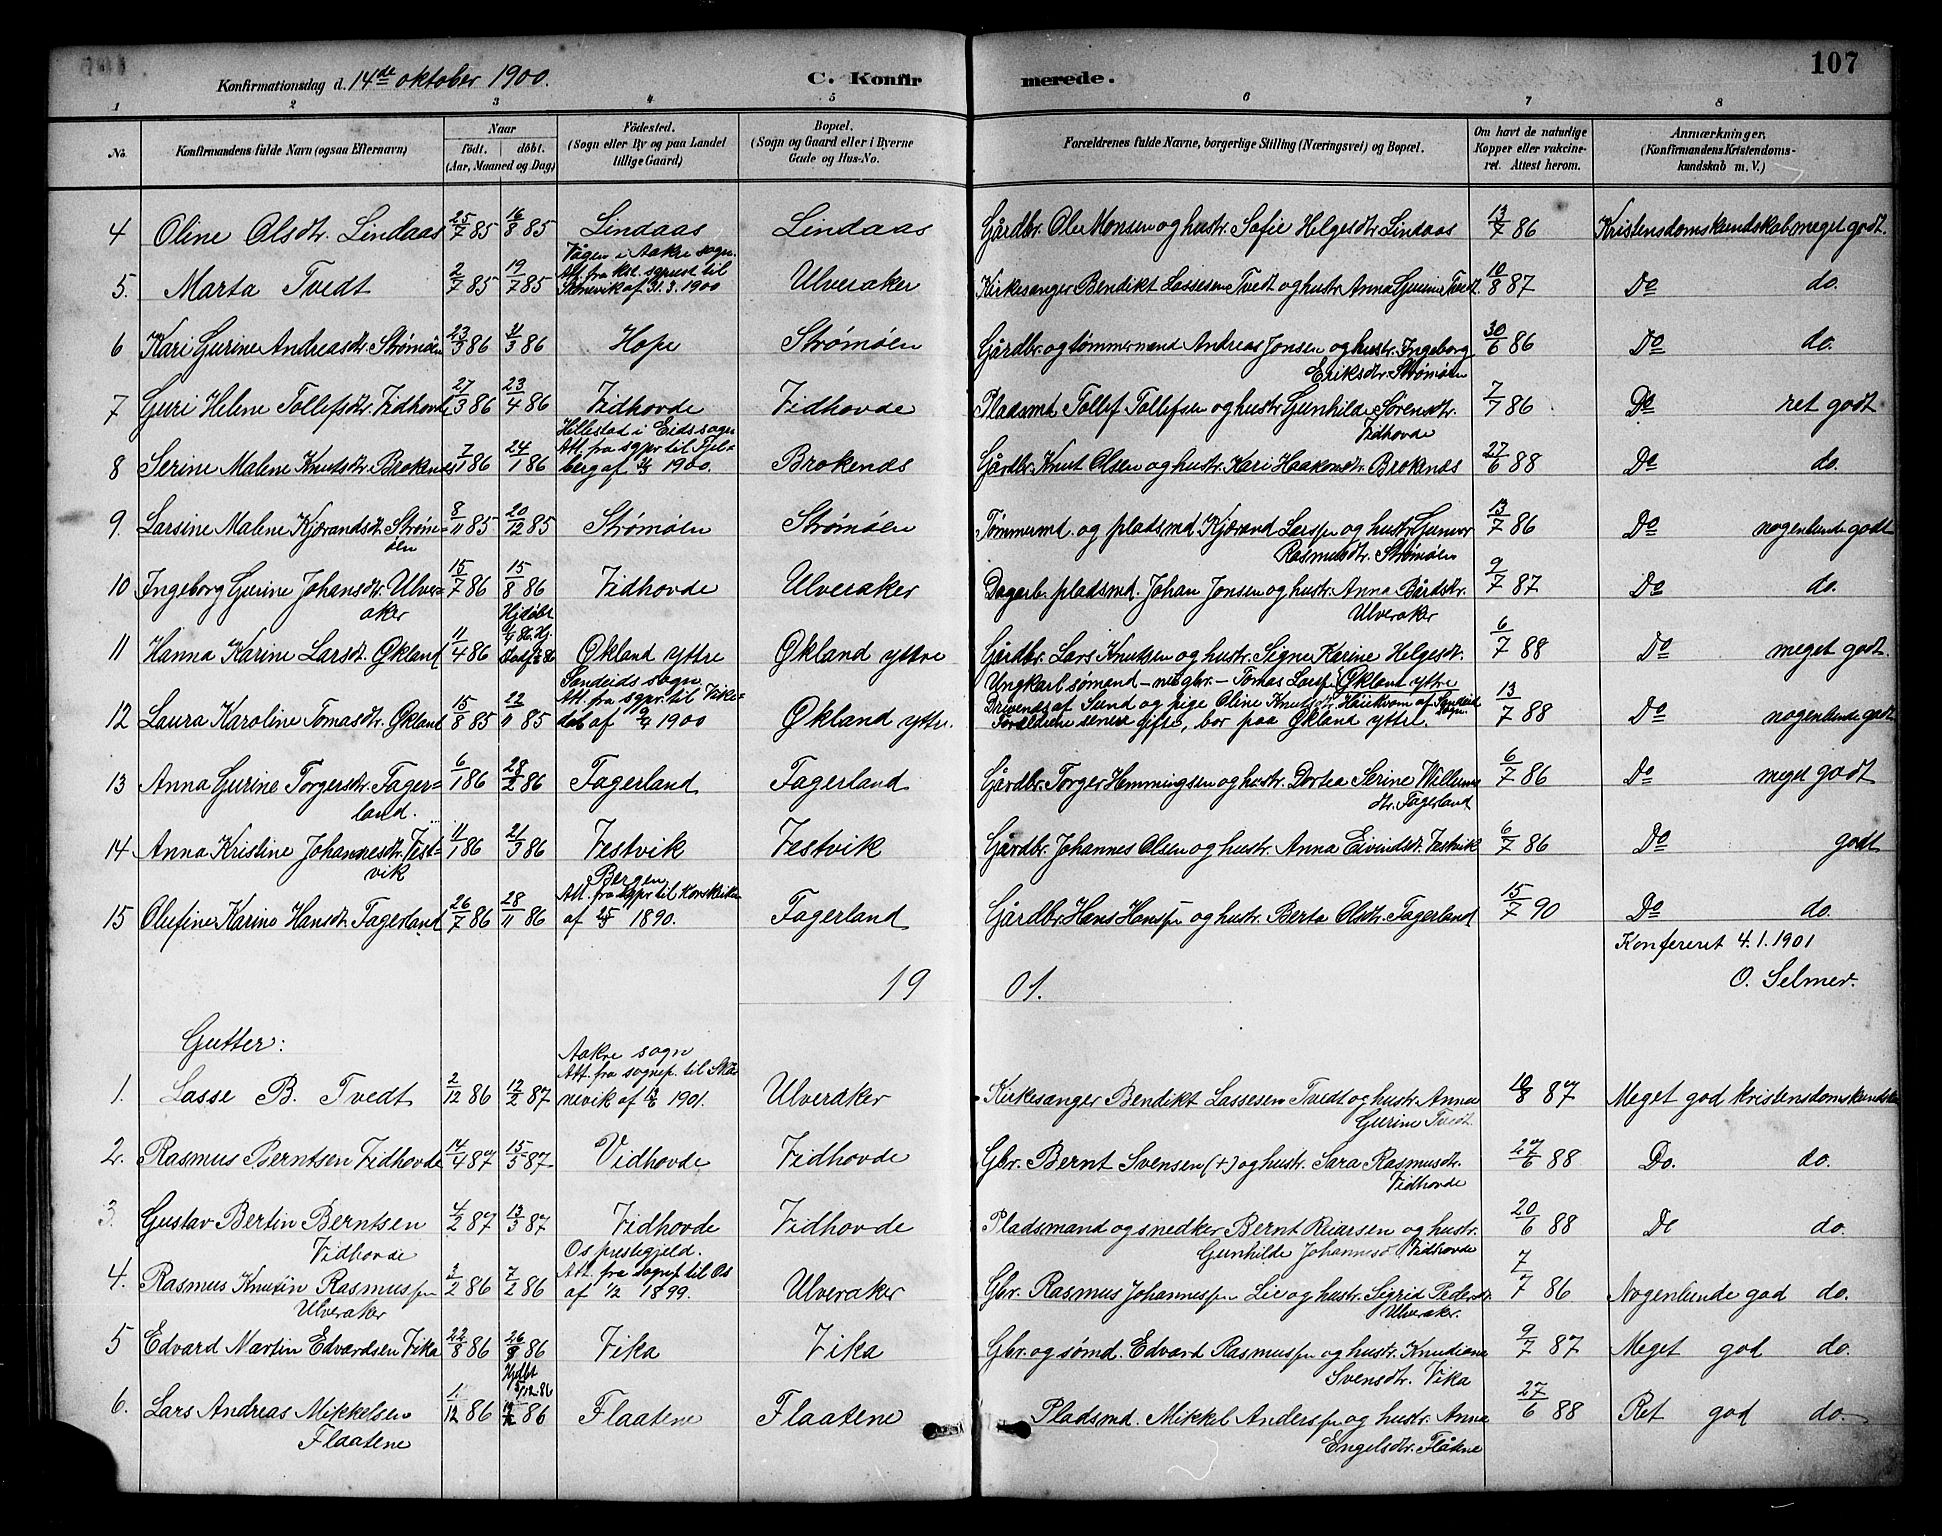 107
Konfirmationsdag d. 14de oktober 1900. C. Konfirmerede.
1 2 3 4 5 6 7 8
No. Konfirmandens fulde Navn (ogsaa Efternavn) Naar født. døbt. (Aar, Maaned og Dag) Fødested. (Sogn eller By og paa Landet tillige Gaard) Bopæl. (Sogn og Gaard eller i Byerne Gade og Hus-No. Forældrenes fulde Navne, borgerlige Stilling (Næringsvei) og Bopæl. Om havt de naturlige Kopper eller vakcineret. Attest herom. Anmærkninger. (Konfirmandens Kristendomskundskab m. V.)
4 Oline Olsdtr. Lindaas 25/7 85 16/8 85 Lindaas Lindaas Gårdbr. Ole Monsen og hustr. Sofie Helgesdtr. Lindaas 13/7 86 Kristensdomskundskab meget godt.
5. Marta Tvedt 2/7 85 19/7 85 Vågen i Aakre sogn. Att. fra kst. sgnprst til Skånevik af 31.3.1900 Ulveraker Kirkesanger Bendikt Lassesen Tvedt og hustr. Anna Gurine Tvedt. 10/8 87 Do do.
6 Kari Gurine Andreasdtr. Strømöen 23/3 86 /3 86 Hope Strømöen Gårdbr. og tømmermand Andreas Jonsen og hustr. Ingeborg Eriksdtr. Strømöen 30/6 86 Do do.
7 Guri Helene Tollefsdtr. Vidhovde 27/3 86 23/4 86 Vidhovde Vidhovde Pladsmd Tollef Tollefsen og hustr. Gunhilde Sørensdtr. Vidhovde 7/7 86 Do ret godt
8 Serine Malene Knutsdtr. Brokenes 7/1 86 24/1 86 Hillestad i Eids sogn Att. fra sgpr til Fjelberg af 1900. Brokenes Gårdbr. Knut Olsen og hustr. Kari Haakonsdtr. Brokenes 27/6 88 Do do.
9. Larsine Malene Kjørandsdt. Strømöen 8/11 85 20/12 85 Strømöen Strømöen Tømmermd. og pladsmd. Kjørand Larssen og hustr. Gunvor Rasmusdtr. Strømöen 13/7 86 Do nogenlunde godt
10 Ingeborg Gurine Johansdtr. Ulveraker 15/7 86 15/8 86 Vidhovde Ulveraker Dagarb. pladsmd. Johan Jonsen og hustr. Anna Bårdsdtr. Ulveraker 9/7 87 Do do.
11 Hanna Karine Larsdt. Økland 11/4 86 Hjdøbt Økland yttre Økland yttre Gårdbr. Lars Knutsen og hustr. Signe Karine Helgesdt. Økland yttre 6/7 88 Do meget godt.
12 Laura Karoline Tomasdtr. Økland 15/8 85 22/11 85 Sandeids sogn Att. fra sgpr. til Vikedal af 1900 Økland yttre. Ungkarl sømand Tomas Larss. Drivenes af Sund og pige Oline Knutsdtr. af Sandeid sogn. Forældrene senere gifte, bor paa Økland yttre. 13/7 88 Do nogenlunde godt
13 Anna Gurine Torgersdtr. Fagerland. 6/1 86 28/2 86 Fagerland Fagerland Gårdbr. Torger Hemmingsen og hustr. Dortea Serine Willumsdtr. Fagerland 6/7 86 Do meget godt
14 Anna Kristine Johannesdtr. Vestvik 11/1 86 21/3 86 Vestvik Vestvik Gårdbr. Johannes Olsen og hustr. Anna Eivindsdt. Vestvik 6/7 86 Do godt
15 Olefine Karine Hansdt. Fagerland 26/7 86 28/11 86 Bergen Att. fra sgpr til Korskirken af 1890. Fagerland Gårdbr. Hans Hanss. og hustr. Berta Olsdtr. Fagerland 15/7 90 Do do.
Konfereret 4.1.1901
O. Selmer.
19 01.
Gutter:
1. Lasse B. Tvedt 2/12 86 12/2 87 Aakre sogn Att. fra sognep. til Skånevik af 1901. Ulveraker Kirkesanger Bendikt Lassesen Tvedt og hustr. Anna Gurine Tvedt. 10/8 87 Meget god kristensdomskundskab
2. Rasmus Berntsen Vidhovde 14/4 87 15/5 87 Vidhovde Vidhovde Gbr. Bernt Svensen (+) og hustr. Sara Rasmusdtr. Vidhovde 27/6 88 Do. do.
3. Gustav Bertin Berntsen Vidhovde 4/2 87 13/3 87 Vidhovde Vidhovde Pladsmand og snedker Bernt Riarsen og hustr. Gunhilde Johannesd Vidhovde 20/6 88 Do do.
4. Rasmus Knutin Rasmuss. Ulveraker 3/2 86 7/2 86 Os prestegjeld. Att. fra sognep. til Os af 1/2 1899. Ulveraker Gbr. Rasmus Johanness. Lie og hustr. Sigrid Pedersdt. Ulveraker. 7/7 86 Nogenlunde god do.
5 Edvard Martin Edvardsen Vika 22/8 86 26/9 86 Vika Vika Gbr. og sømd. Edvard Rasmuss. og hustr. Knudiane Svensdtr. Vika 9/7 87 Meget god do.
6. Lars Andreas Mikkelsen Flaatene 1/12 86 Hjdbt 5/12 86 Flaatene Flaatene Pladsmd. Mikkel Anderss. og hustr. Anna Engelsdtr. Flåtene 27/6 88 Ret god do.